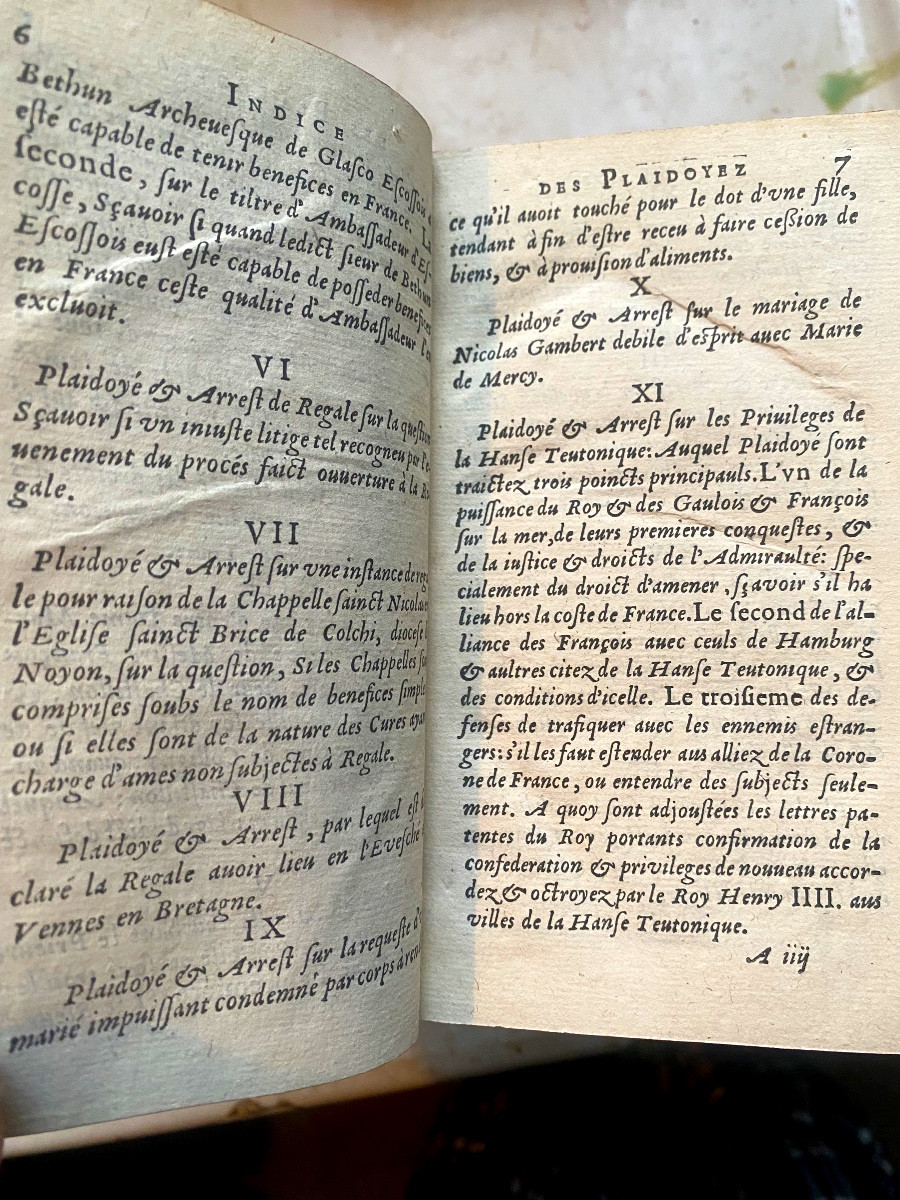 6
INDICE
Bethun Archeueſque de Glaſco Eſcoſſois
eſté capable de tenir benefices en France. La
ſeconde, ſur le tiltre d'Ambaſſadeur d'Eſ-
coſſe, Sçauoir ſi quand ledict ſieur de Bethun
Eſcoſſois euſt eſté capable de poſſeder benefices
en France ceſte qualité d'Ambaſſadeur l'en
excluoit.
VI
Plaidoyé & Arreſt de Regale ſur la queſtion
Sçauoir ſi vn iniuſte litige tel recogneu par l'e-
uenement du procés faict ouuerture à la Re-
gale.
VII
Plaidoyé & Arreſt ſur vne inſtance de
le pour raiſon de la Chappelle ſainct Nicolas
l'Egliſe ſainct Brice de Colchi, dioceſe
Noyon, ſur la queſtion, Si les Chappelles
compriſes ſoubs le nom de benefices ſimples
ou ſi elles ſont de la nature des Cures
charge d'ames non ſubjectes à Regale.
VIII
Plaidoyé & Arreſt, par lequel eſt
claré la Regale auoir lieu en l'Eveſché
Vennes en Bretagne.
IX
Plaidoyé & Arreſt ſur la requeſte
marié impuiſſant condemné par corps à
DES PLAIDOYEZ 7
ce qu'il auoit touché pour le dot d'vne fille,
tendant à fin d'eſtre receu à faire ceſsion de
biens, & à prouiſion d'aliments.
X
Plaidoyé & Arreſt ſur le mariage de
Nicolas Gambert debile d'eſprit auec Marie
de Mercy.
XI
Plaidoyé & Arreſt ſur les Priuileges de
la Hanſe Teutonique: Auquel Plaidoyé ſont
traictez trois poincts principauls. L'vn de la
puiſſance du Roy & des Gaulois & François
ſur la mer, de leurs premieres conqueſtes, &
de la iuſtice & droicts de l'Admiraulté: ſpe-
cialement du droict d'amener, ſçavoir s'il ha
lieu hors la coſte de France. Le ſecond de l'al-
liance des François auec ceuls de Hamburg
& aultres citez de la Hanſe Teutonique, &
des conditions d'icelle. Le troiſieme des de-
fenſes de trafiquer auec les ennemis eſtran-
gers: s'il les faut eſtender aus alliez de la Coro-
ne de France, ou entendre des ſubjects ſeule-
ment. A quoy ſont adjouſtées les lettres pa-
tentes du Roy portants confirmation de la
confederation & privileges de nouueau accor-
dez & octroyez par le Roy Henry IIII. aus
villes de la Hanſe Teutonique.
A iiij